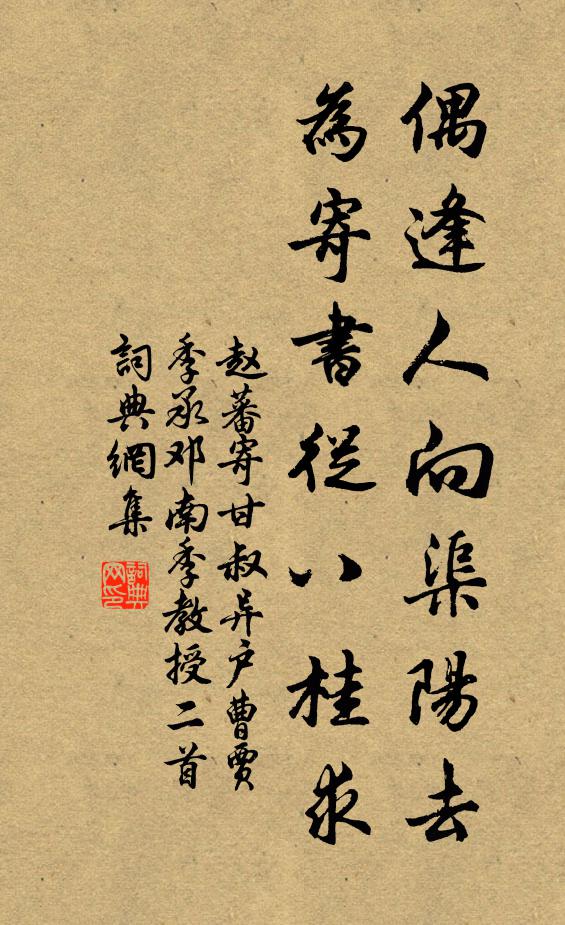 偶逢人向渠陽去
為寄書從八桂求
赵蕃寄甘叔异户曹賈
季承邓南季教授二首
詞典網集
詞典网印